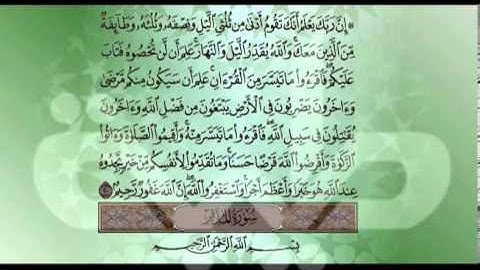 ۞ إِنَّ رَبَّكَ يَعْلَمُ أَنَّكَ تَقُومُ أَدْنَىٰ مِن ثُلُثَىِ ٱلَّيْلِ وَنِصْفَهُۥ وَثُلُثَهُۥ وَطَآئِفَةٌ
مِّنَ ٱلَّذِينَ مَعَكَ ۚ وَٱللَّهُ يُقَدِّرُ ٱلَّيْلَ وَٱلنَّهَارَ ۚ عَلِمَ أَن لَّن تُحْصُوهُ فَتَابَ
عَلَيْكُمْ ۖ فَٱقْرَءُوا۟ مَا تَيَسَّرَ مِنَ ٱلْقُرْءَانِ ۚ عَلِمَ أَن سَيَكُونُ مِنكُم مَّرْضَىٰ ۙ
وَءَاخَرُونَ يَضْرِبُونَ فِى ٱلْأَرْضِ يَبْتَغُونَ مِن فَضْلِ ٱللَّهِ ۙ وَءَاخَرُونَ
يُقَٰتِلُونَ فِى سَبِيلِ ٱللَّهِ ۖ فَٱقْرَءُوا۟ مَا تَيَسَّرَ مِنْهُ ۚ وَأَقِيمُوا۟ ٱلصَّلَوٰةَ وَءَاتُوا۟
ٱلزَّكَوٰةَ وَأَقْرِضُوا۟ ٱللَّهَ قَرْضًا حَسَنًا ۚ وَمَا تُقَدِّمُوا۟ لِأَنفُسِكُم مِّنْ خَيْرٍ تَجِدُوهُ
عِندَ ٱللَّهِ هُوَ خَيْرًا وَأَعْظَمَ أَجْرًا ۚ وَٱسْتَغْفِرُوا۟ ٱللَّهَ ۖ إِنَّ ٱللَّهَ غَفُورٌ رَّحِيمٌۢ ٢٠
سُورَةُ المدثر
بِسْمِ ٱللَّهِ ٱلرَّحْمَٰنِ ٱلرَّحِيمِ